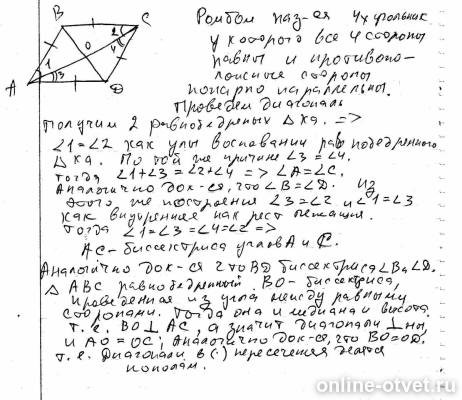 B C
2
4
O
1
3
A D
Ромбом наз-ся 4х угольник
у которого все 4 стороны
равны и противопо-
ложные стороны
попарно параллельны.
Проведем диагональ
получим 2 равнобедренных Δка. =>
∠1=∠2 как углы восновании равнобедренного
Δка. По той же причине ∠3=∠4.
Тогда ∠1+∠3=∠2+∠4 => ∠A=∠C.
Аналогично док-ся, что ∠B=∠D. Из
этого же построения ∠3=∠2 и ∠1=∠3
как внутренние нак рест лежащия.
Тогда ∠1=∠3=∠4=∠2 =>
AC - биссектриса углов A и C.
Аналогично док-ся что BD биссектриса ∠B и ∠D.
Δ ABC равнобедренный. BO - биссектриса,
проведенная из угла между равными
сторонами. Тогда она и медиана и высота.
т.е. BO ⊥ AC, а значит диагонали ⊥ны,
и AO = OC; Аналогично док-ся, что BO=OD.
т.е. Диагонали в (·) пересечения делятся
пополам.
online-otvet.ru